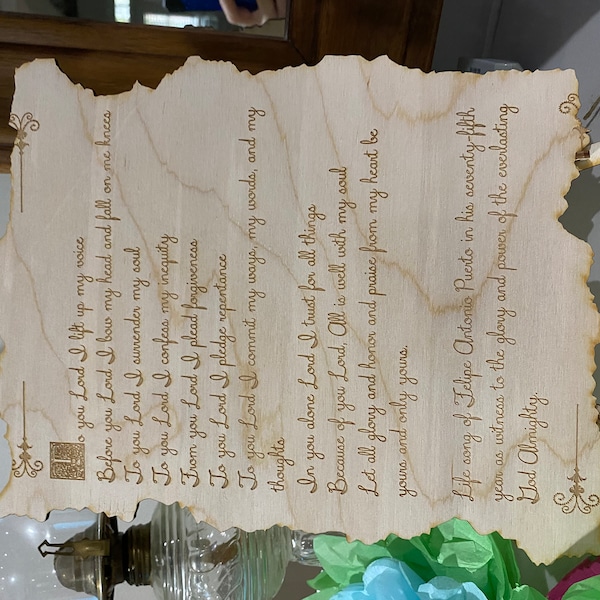 To you Lord I lift up my voice
Before you Lord I bow my head and fall on me knees
To you Lord I surrender my soul
To you Lord I confess my inequity
From you Lord I plead forgiveness
To you Lord I pledge repentance
To you Lord I commit my ways, my words, and my
thoughts
In you alone Lord I trust for all things
Because of you Lord, All is well with my soul
Let all glory and honor and praise from my heart be
yours and only yours.
Life song of Felipe Antonio Puerto in his seventy-fifth
year as witness to the glory and power of the everlasting
God Almighty.